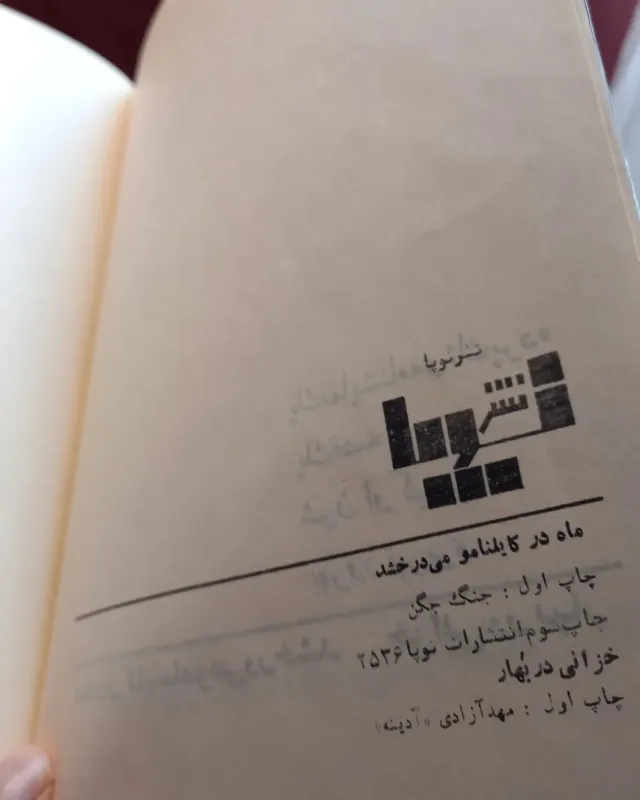 نشر نوپا
نشر نوپا
ماه در کایلنامو می‌درخشد
چاپ اول : جنگ جگن
چاپ سوم انتشارات نوپا ۲۵۳۶
خزانی در بهار
چاپ اول : مهد آزادی «آدینه»